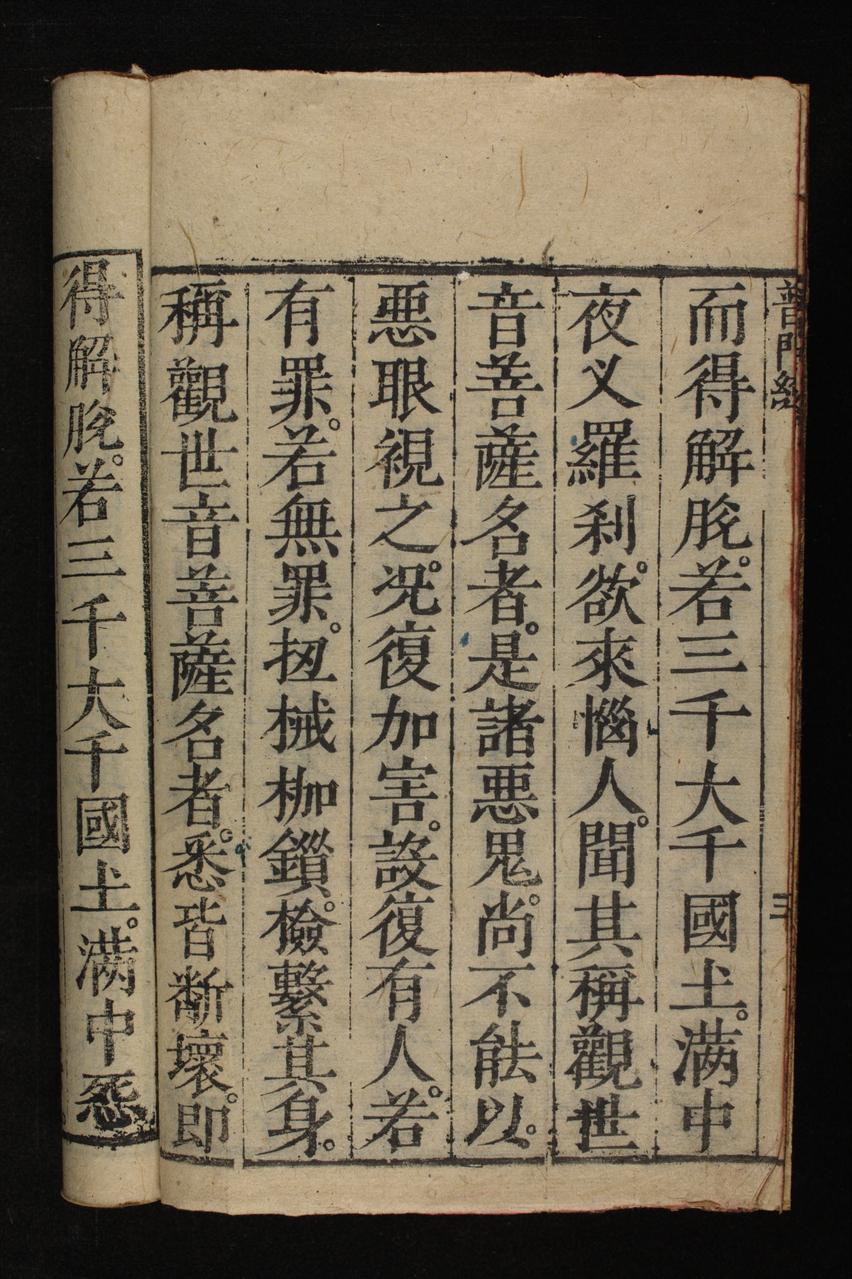 普門經
三
而得解脫。若三千大千國土。滿中
夜叉羅刹。欲來惱人。聞其稱觀世
音菩薩名者。是諸惡鬼。尚不能以。
惡眼視之。況復加害。設復有人。若
有罪。若無罪。扭械枷鎖。檢繫其身。
稱觀世音菩薩名者。悉皆斷壞。即
得解脫。若三千大千國土。滿中怨